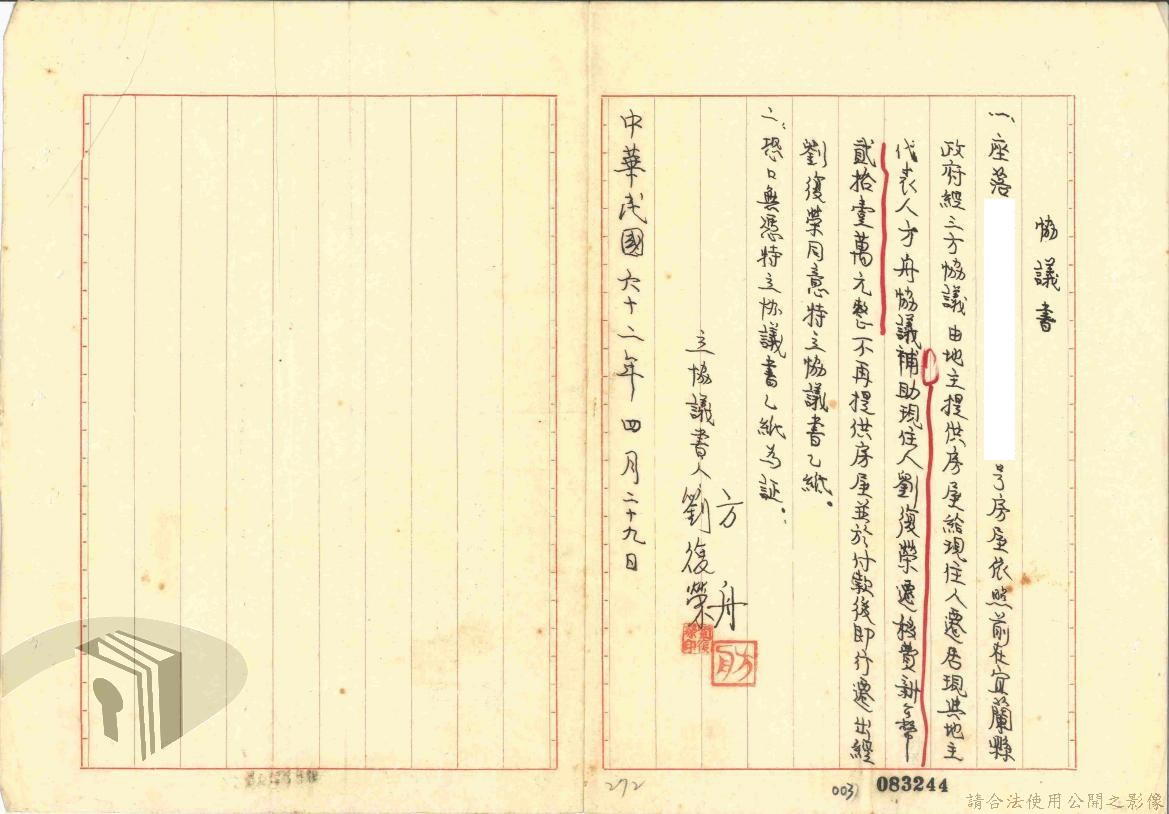 協議書
一、座落
号房屋依照前在宜蘭縣
政府經三方協議由地主提供房屋給現住人遷居現與地主
代表人方舟協議補助現住人劉復榮遷移費新台幣
貳拾壹萬元整不再提供房屋並於付款後即行遷出經
劉復榮同意特立協議書乙紙。
二、恐口無憑特立協議書乙紙為証。
方舟
立協議書人劉復榮
中華民國六十二年四月二十九日
272
003
083244
請合法使用公開之影像